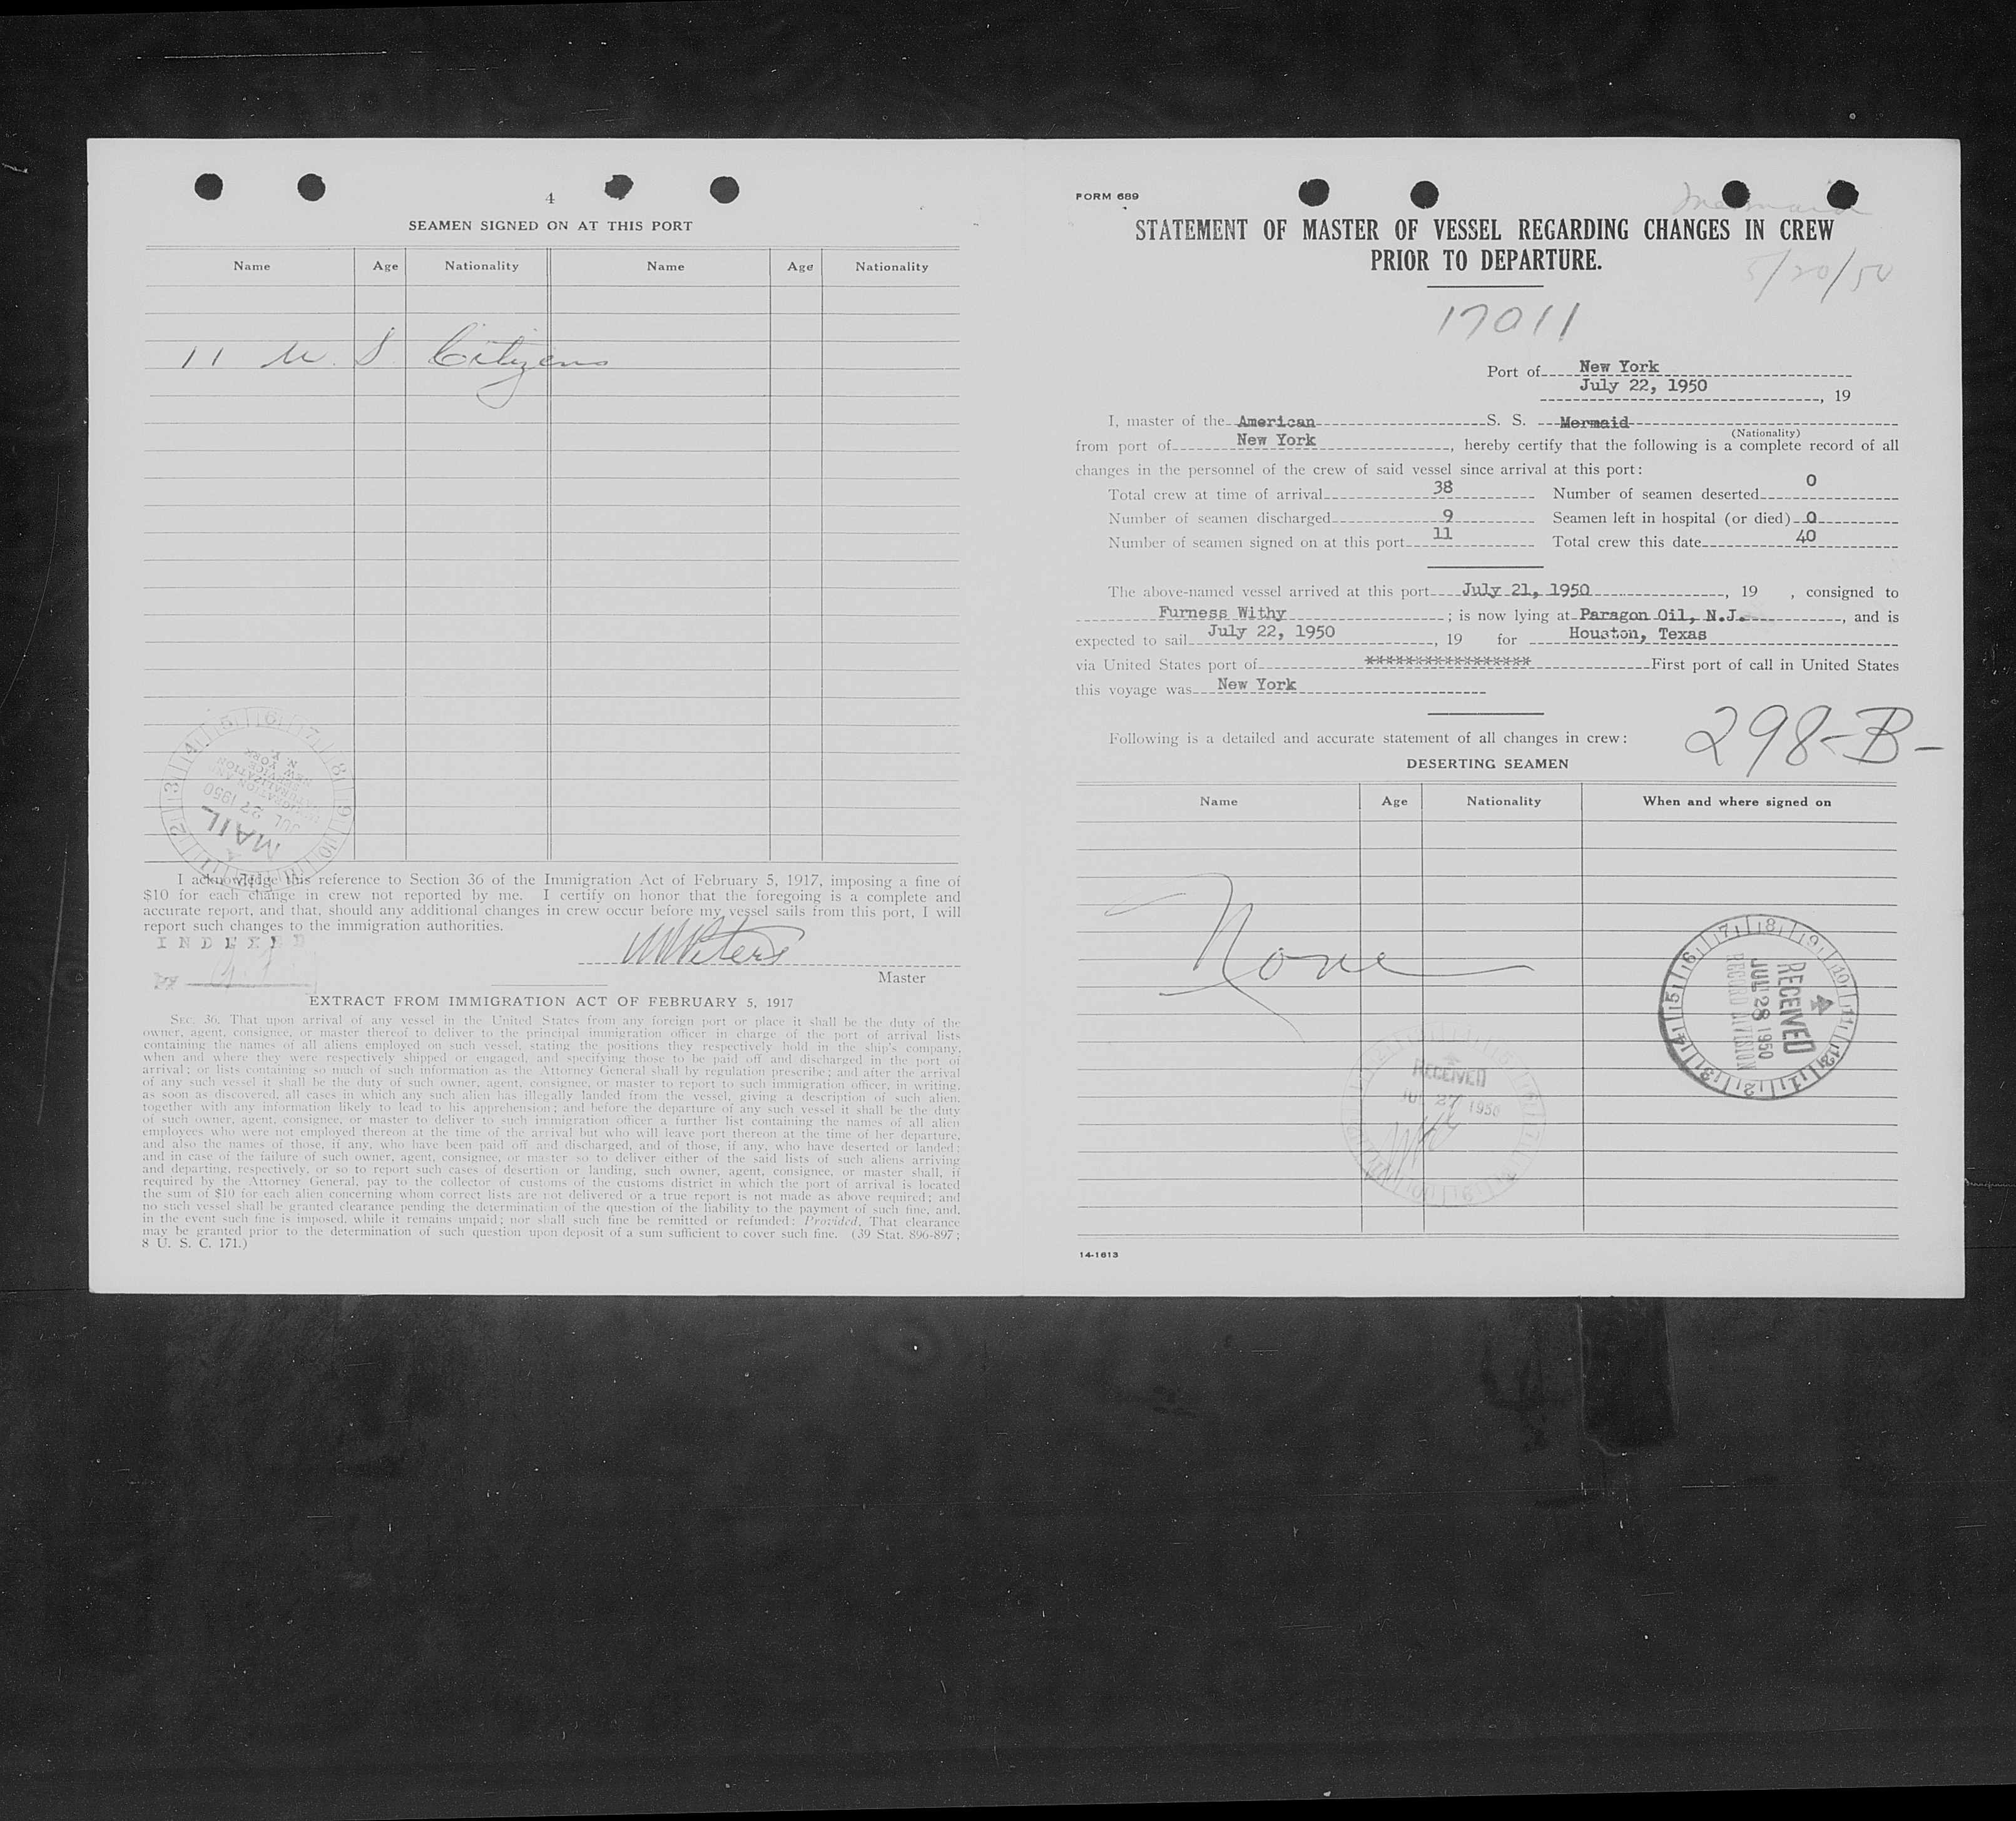 4
SEAMEN SIGNED ON AT THIS PORT
Name Age Nationality Name Age Nationality
11 U. S. Citizens
MAIL
JUL 27 1950
I acknowledge this reference to Section 36 of the Immigration Act of February 5, 1917, imposing a fine of
$10 for each change in crew not reported by me. I certify on honor that the foregoing is a complete and
accurate report, and that, should any additional changes in crew occur before my vessel sails from this port, I will
report such changes to the immigration authorities.
INDEXED
Master
EXTRACT FROM IMMIGRATION ACT OF FEBRUARY 5, 1917
SEC. 36. That upon arrival of any vessel in the United States from any foreign port or place it shall be the duty of the
owner, agent, consignee, or master thereof to deliver to the principal immigration officer in charge of the port of arrival lists
containing the names of all aliens employed on such vessel, stating the positions they respectively hold in the ship's company,
when and where they were respectively shipped or engaged, and specifying those to be paid off and discharged in the port of
arrival; or lists containing so much of such information as the Attorney General shall by regulation prescribe; and after the arrival
of any such vessel it shall be the duty of such owner, agent, consignee, or master to report to such immigration officer, in writing,
as soon as discovered, all cases in which any such alien has illegally landed from the vessel, giving a description of such alien,
together with any information likely to lead to his apprehension; and before the departure of any such vessel it shall be the duty
of such owner, agent, consignee, or master to deliver to such immigration officer a further list containing the names of all alien
employees who were not employed thereon at the time of the arrival but who will leave port thereon at the time of her departure,
and also the names of those, if any, who have been paid off and discharged, and of those, if any, who have deserted or landed;
and in case of the failure of such owner, agent, consignee, or master so to deliver either of the said lists of such aliens arriving
and departing, respectively, or so to report such cases of desertion or landing, such owner, agent, consignee, or master shall, if
required by the Attorney General, pay to the collector of customs of the customs district in which the port of arrival is located
the sum of $10 for each alien concerning whom correct lists are not delivered or a true report is not made as above required; and
no such vessel shall be granted clearance pending the determination of the question of the liability to the payment of such fine, and,
in the event such fine is imposed, while it remains unpaid; nor shall such fine be remitted or refunded: Provided, That clearance
may be granted prior to the determination of such question upon deposit of a sum sufficient to cover such fine. (39 Stat. 896-897;
8 U. S. C. 171.)
FORM 689
Mermaid
STATEMENT OF MASTER OF VESSEL REGARDING CHANGES IN CREW
PRIOR TO DEPARTURE.
5/20/50
17011
Port of New York
July 22, 1950 , 19
I, master of the American S. S. Mermaid
(Nationality)
from port of New York , hereby certify that the following is a complete record of all
changes in the personnel of the crew of said vessel since arrival at this port:
Total crew at time of arrival 38 Number of seamen deserted 0
Number of seamen discharged 9 Seamen left in hospital (or died) 0
Number of seamen signed on at this port 11 Total crew this date 40
The above-named vessel arrived at this port July 21, 1950 , 19 , consigned to
Furness Withy ; is now lying at Paragon Oil, N.J. , and is
expected to sail July 22, 1950 , 19 for Houston, Texas
via United States port of **************** First port of call in United States
this voyage was New York
298-B-
Following is a detailed and accurate statement of all changes in crew:
DESERTING SEAMEN
Name Age Nationality When and where signed on
None
RECEIVED
JUL 28 1950
RECORD DIVISION
RECEIVED
JUL 27 1950
14-1613